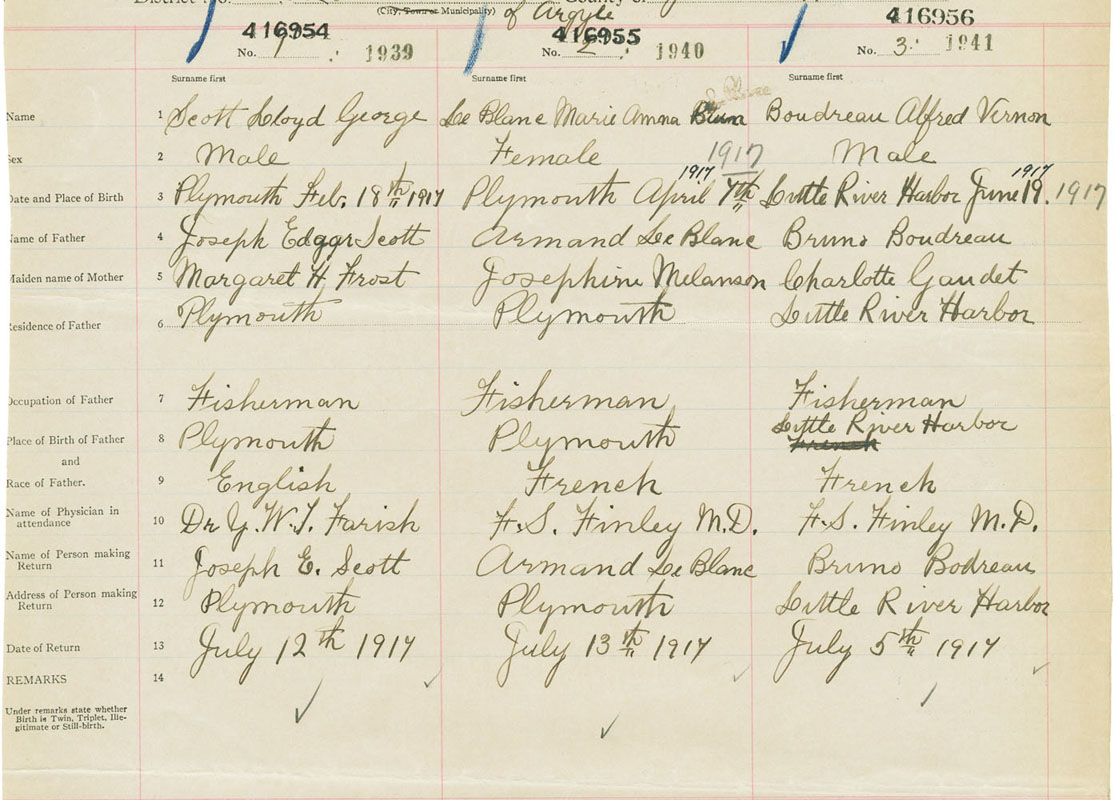 (City, Town or Municipality) of Argyle
416954 416955 416956
No. 1 1939 No. 2 1940 No. 3 1941
Surname first Surname first Surname first
Name 1 Scott Lloyd George Le Blanc Marie Anna Boudreau Alfred Vernon
Sex 2 Male Female 1917 Male
1917 1917
Date and Place of Birth 3 Plymouth Feb. 18th 1917 Plymouth April 7th Little River Harbor June 19. 1917
Name of Father 4 Joseph Edgar Scott Armand Le Blanc Bruno Boudreau
Maiden name of Mother 5 Margaret H. Frost Josephine Melanson Charlotte Gaudet
Residence of Father 6 Plymouth Plymouth Little River Harbor
Occupation of Father 7 Fisherman Fisherman Fisherman
Place of Birth of Father 8 Plymouth Plymouth Little River Harbor
and French
Race of Father. 9 English French French
Name of Physician in attendance 10 Dr G. W. T. Farish F. S. Finley M.D. F. S. Finley M.D.
Name of Person making Return 11 Joseph E. Scott Armand Le Blanc Bruno Bodreau
Address of Person making Return 12 Plymouth Plymouth Little River Harbor
Date of Return 13 July 12th 1917 July 13th 1917 July 5th 1917
REMARKS 14
Under remarks state whether
Birth is Twin, Triplet, Ille-
gitimate or Still-birth.